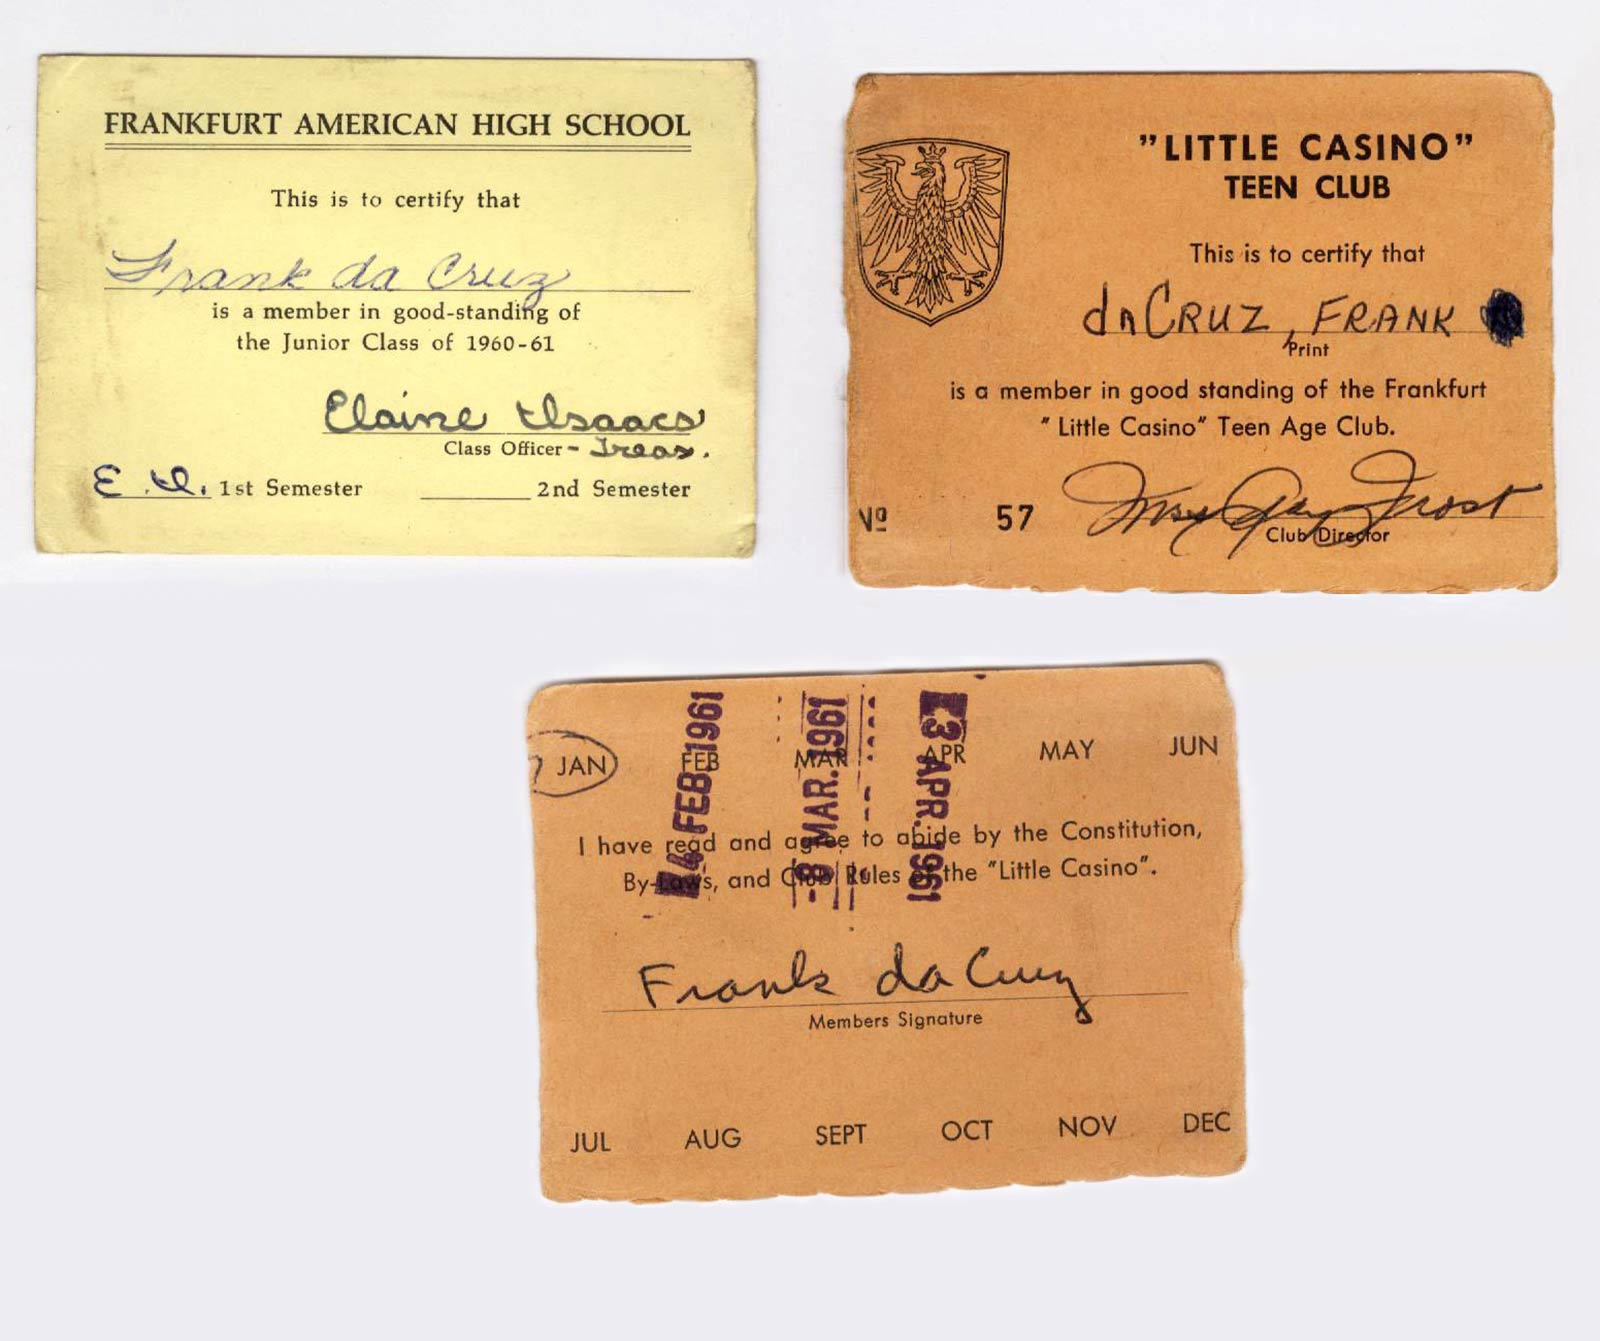 FRANKFURT AMERICAN HIGH SCHOOL
This is to certify that
Frank da Cruz
is a member in good-standing of
the Junior Class of 1960-61
Elaine Isaacs
Class Officer - Treas.
E. I. 1st Semester 2nd Semester
"LITTLE CASINO"
TEEN CLUB
This is to certify that
daCRUZ, FRANK
Print
is a member in good standing of the Frankfurt
"Little Casino" Teen Age Club.
Nº 57 Frost
Club Director
JAN FEB MAR APR MAY JUN
FEB 1961
-8 MAR. 1961
3 APR. 1961
I have read and agree to abide by the Constitution,
By-Laws, and Club Rules of the "Little Casino".
Frank da Cruz
Members Signature
JUL AUG SEPT OCT NOV DEC